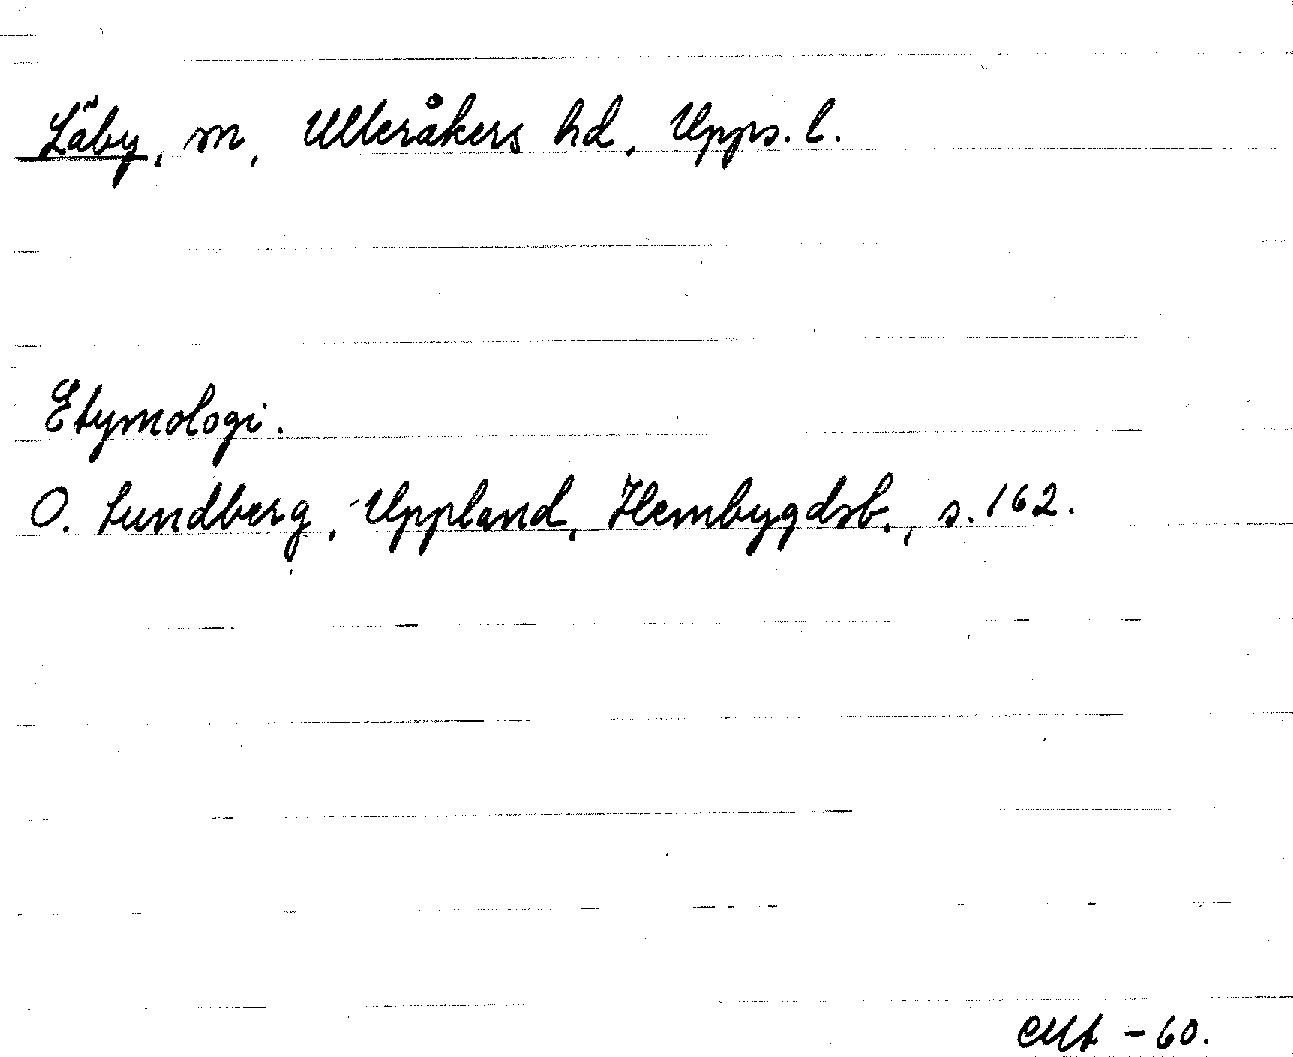 Läby, m, Ulleråkers hd, Upps. l.
Etymologi.
O. Lundberg, Uppland, Hembygdsb., s. 162.
- 60.